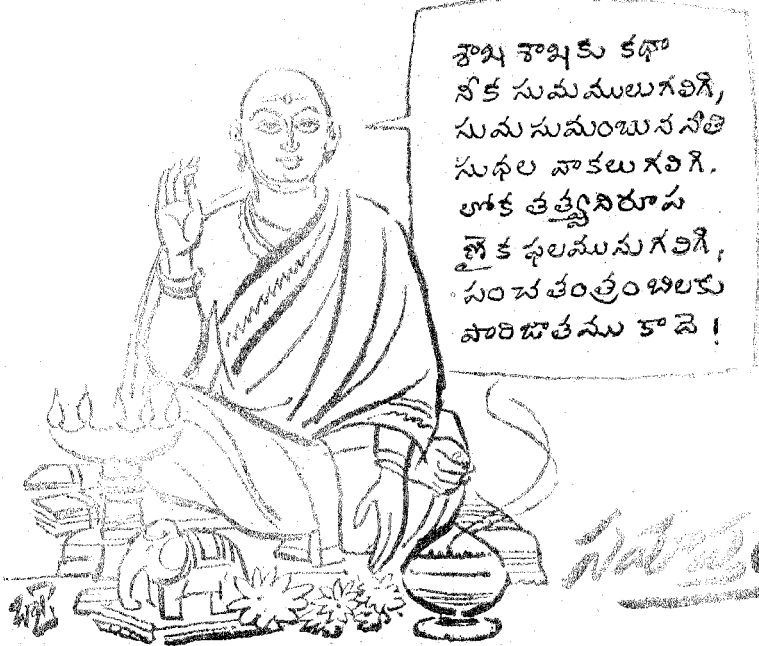 శాఖ శాఖకు కథా
నీక సుమములుగలిగి,
సుమ సుమంబున నీతి
సుధల వాకలు గలిగి.
లోక తత్త్వనిరూప
ణైక ఫలమునుగలిగి,
పంచతంత్రం బిలకు
పారిజాతము కాదె!